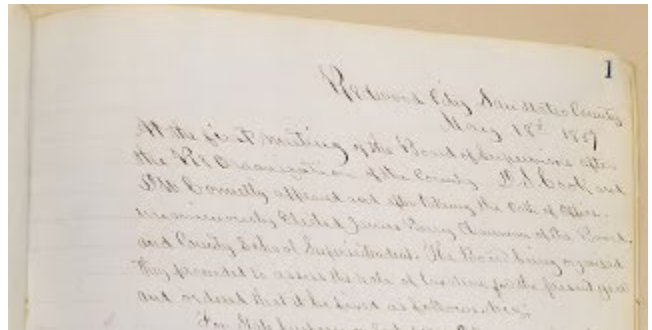 1
Redwood City San Mateo County
May 18th 1857
At the first meeting of the Board of Supervisors after
the Re Organization of the County and
Connelly appeard and after taking the Oath of Office
unanimously Elected James Chairman of the Board
and County School Superintendent. The Board being organized
they proceeded to assess the rate of taxation for the present year
and ordered that it be fixed as follows
For State purposes